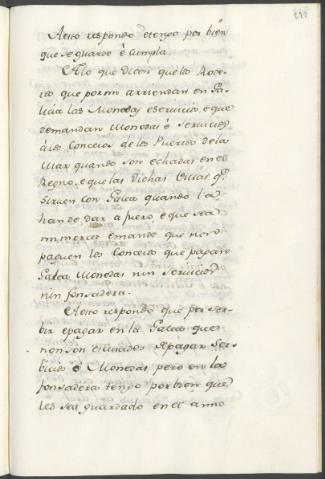 Aesto respondo etengo por bien
que se guarde è cumpla.
Alo que dicen que los Roce-
ros que pormi arriendan en Ga-
licia las Monedas eservicios, e que
demandan Monedas è Servicios
àlos Concejos de los Puertos dela
Mar quando son echadas en el
Regno, e que las dichas Villas qe.
sirven con Galea quando la
han de dar a fuero, e que sea
mi merced emande que non
paguen los Concejos que pagaren
Galea Monedas nin Servicios
nin fonsadera.
Aesto respondo que por ser-
bir epagar en la Galea que
non son escusados Apagar Ser-
bicios è Monedas pero en la
fonsadera tengo por bien que
les sea guardado en el anno